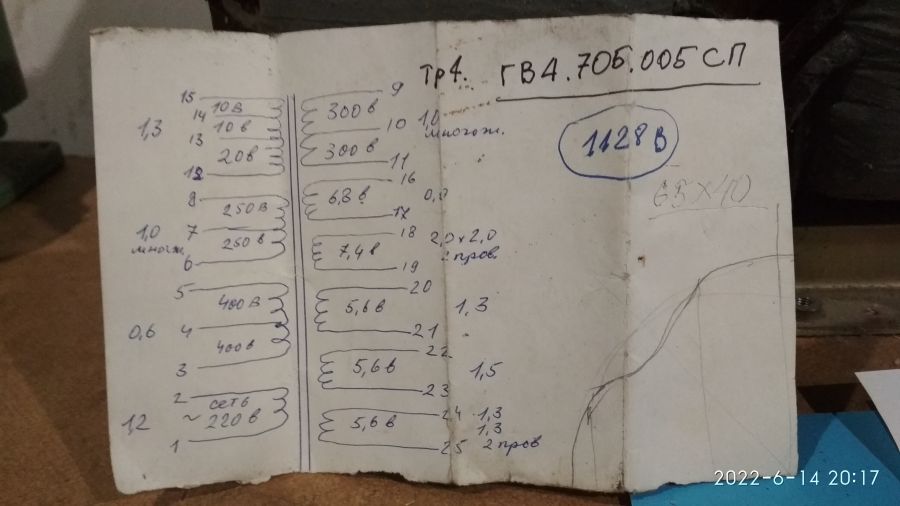 Тр4. ГВ4.705.005 СП
1128 В
65 х 40
15
14
10 в
1,3
13
10 в
12
20 в
8
250 в
1,0
множ.
7
250 в
6
5
400 в
0,6
4
400 в
3
2
сеть
1,2
~ 220 в
1
9
300 в
10
1,0
множ.
300 в
11
16
6,3 в
17
18
2,0 х 2,0
7,4 в
2 пров
19
20
5,6 в
1,3
21
22
5,6 в
1,5
23
24
1,3
5,6 в
1,3
25
2 пров
2022-6-14 20:17